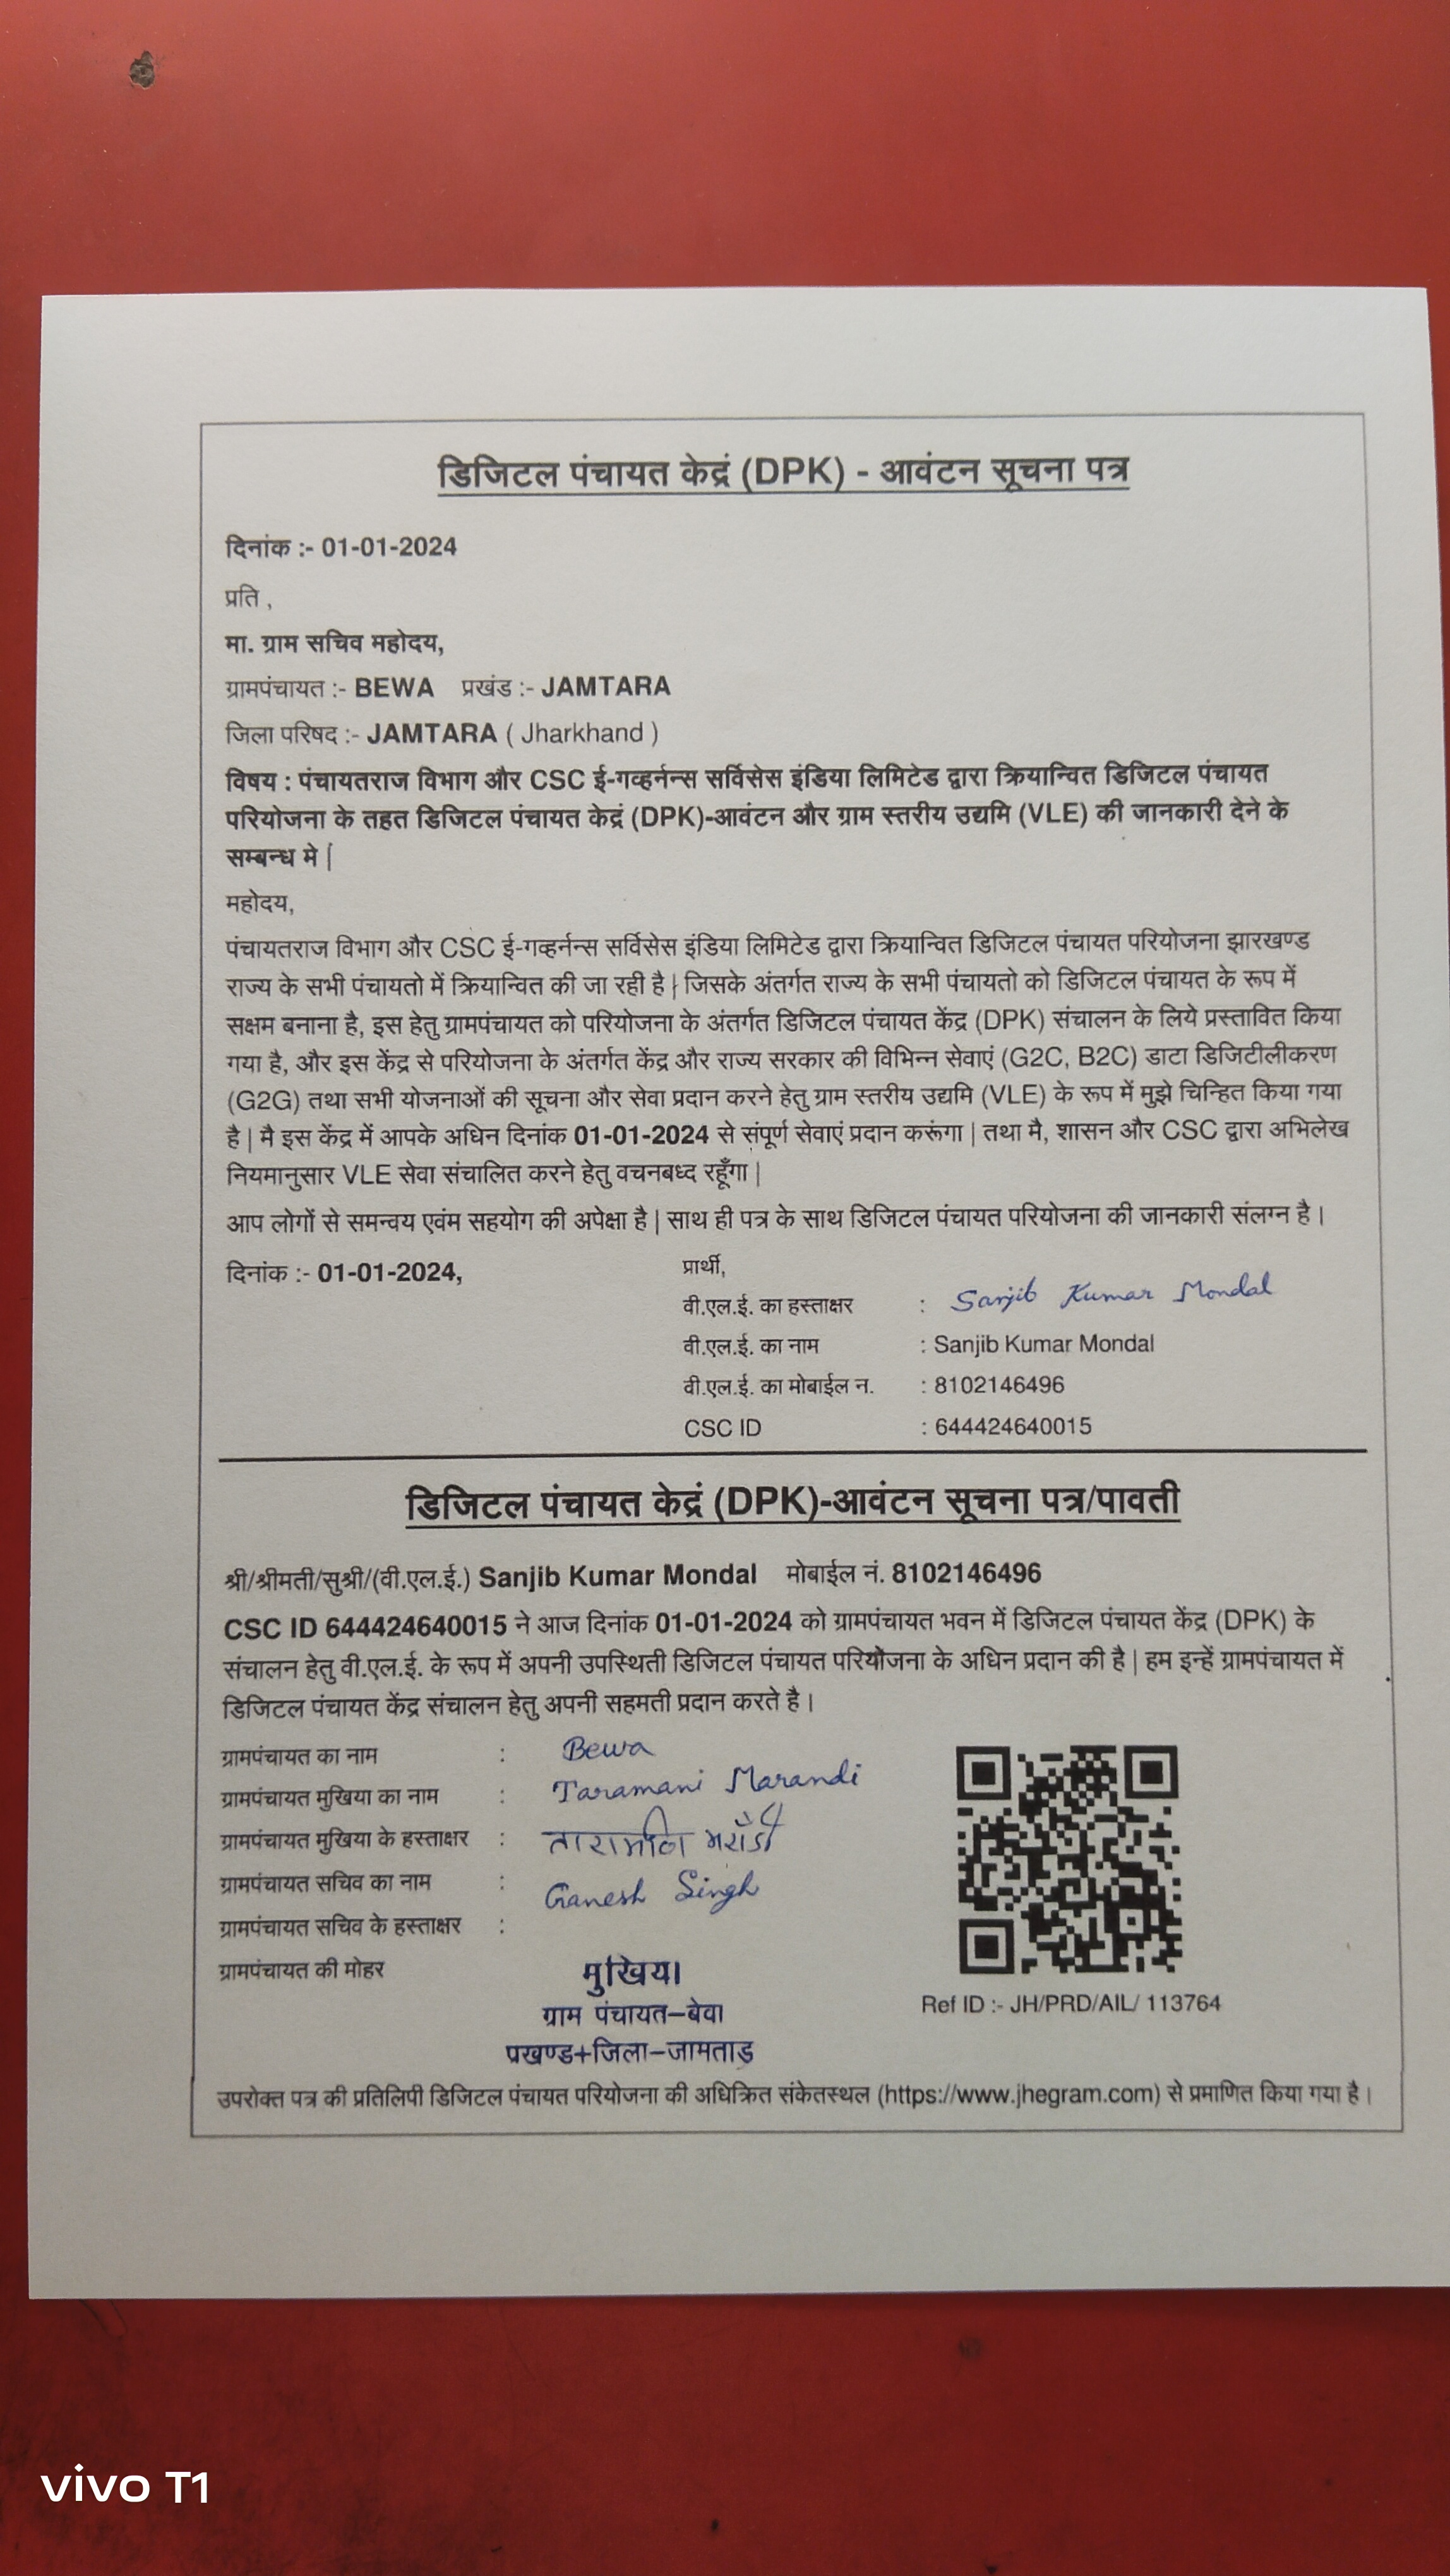 डिजिटल पंचायत केद्रं (DPK) - आवंटन सूचना पत्र
दिनांक :- 01-01-2024
प्रति ,
मा. ग्राम सचिव महोदय,
ग्रामपंचायत :- BEWA प्रखंड :- JAMTARA
जिला परिषद :- JAMTARA ( Jharkhand )
विषय : पंचायतराज विभाग और CSC ई-गव्हर्नन्स सर्विसेस इंडिया लिमिटेड द्वारा क्रियान्वित डिजिटल पंचायत
परियोजना के तहत डिजिटल पंचायत केद्रं (DPK)-आवंटन और ग्राम स्तरीय उद्यमि (VLE) की जानकारी देने के
सम्बन्ध मे |
महोदय,
पंचायतराज विभाग और CSC ई-गव्हर्नन्स सर्विसेस इंडिया लिमिटेड द्वारा क्रियान्वित डिजिटल पंचायत परियोजना झारखण्ड
राज्य के सभी पंचायतो में क्रियान्वित की जा रही है | जिसके अंतर्गत राज्य के सभी पंचायतो को डिजिटल पंचायत के रूप में
सक्षम बनाना है, इस हेतु ग्रामपंचायत को परियोजना के अंतर्गत डिजिटल पंचायत केंद्र (DPK) संचालन के लिये प्रस्तावित किया
गया है, और इस केंद्र से परियोजना के अंतर्गत केंद्र और राज्य सरकार की विभिन्न सेवाएं (G2C, B2C) डाटा डिजिटीलीकरण
(G2G) तथा सभी योजनाओं की सूचना और सेवा प्रदान करने हेतु ग्राम स्तरीय उद्यमि (VLE) के रूप में मुझे चिन्हित किया गया
है | मै इस केंद्र में आपके अधिन दिनांक 01-01-2024 से संपूर्ण सेवाएं प्रदान करूंगा | तथा मै, शासन और CSC द्वारा अभिलेख
नियमानुसार VLE सेवा संचालित करने हेतु वचनबध्द रहूँगा |
आप लोगों से समन्वय एवंम सहयोग की अपेक्षा है | साथ ही पत्र के साथ डिजिटल पंचायत परियोजना की जानकारी संलग्न है |
दिनांक :- 01-01-2024, प्रार्थी,
वी.एल.ई. का हस्ताक्षर : Sanjib Kumar Mondal
वी.एल.ई. का नाम : Sanjib Kumar Mondal
वी.एल.ई. का मोबाईल न. : 8102146496
CSC ID : 644424640015
डिजिटल पंचायत केद्रं (DPK)-आवंटन सूचना पत्र/पावती
श्री/श्रीमती/सुश्री/(वी.एल.ई.) Sanjib Kumar Mondal मोबाईल नं. 8102146496
CSC ID 644424640015 ने आज दिनांक 01-01-2024 को ग्रामपंचायत भवन में डिजिटल पंचायत केंद्र (DPK) के
संचालन हेतु वी.एल.ई. के रूप में अपनी उपस्थिती डिजिटल पंचायत परियोजना के अधिन प्रदान की है | हम इन्हें ग्रामपंचायत में
डिजिटल पंचायत केंद्र संचालन हेतु अपनी सहमती प्रदान करते है |
ग्रामपंचायत का नाम : Bewa
ग्रामपंचायत मुखिया का नाम : Taramani Marandi
ग्रामपंचायत मुखिया के हस्ताक्षर : तारामनि मराँडी
ग्रामपंचायत सचिव का नाम : Ganesh Singh
ग्रामपंचायत सचिव के हस्ताक्षर :
ग्रामपंचायत की मोहर
मुखिया
ग्राम पंचायत–बेवा
प्रखण्ड+जिला–जामताड़
Ref ID :- JH/PRD/AIL/ 113764
उपरोक्त पत्र की प्रतिलिपी डिजिटल पंचायत परियोजना की अधिक्रित संकेतस्थल (https://www.jhegram.com) से प्रमाणित किया गया है |
vivo T1